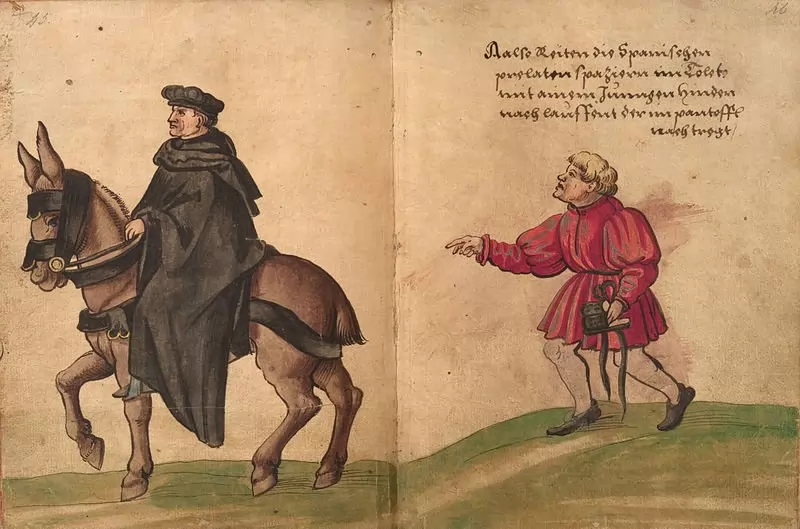 45.
46
Aalso Reiten die Spanischen
prelaten spaziern im Toleto
mit ainem Jungen hinden
nach lauffent der im pantoffl
nach tregt